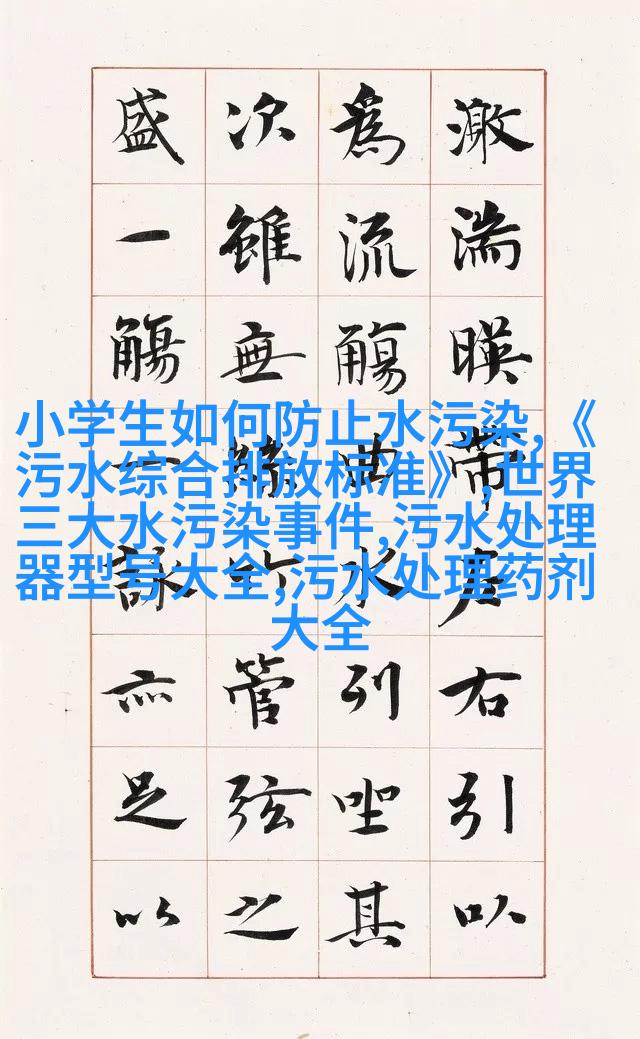 激湍暎帶左右引以
為流觴曲水列坐其
次雖無絲竹管弦之
盛一觴一詠亦足以
小学生如何防止水污染,《
污水综合排放标准》,世界
三大水污染事件,污水处理
器型号大全,污水处理药剂
大全